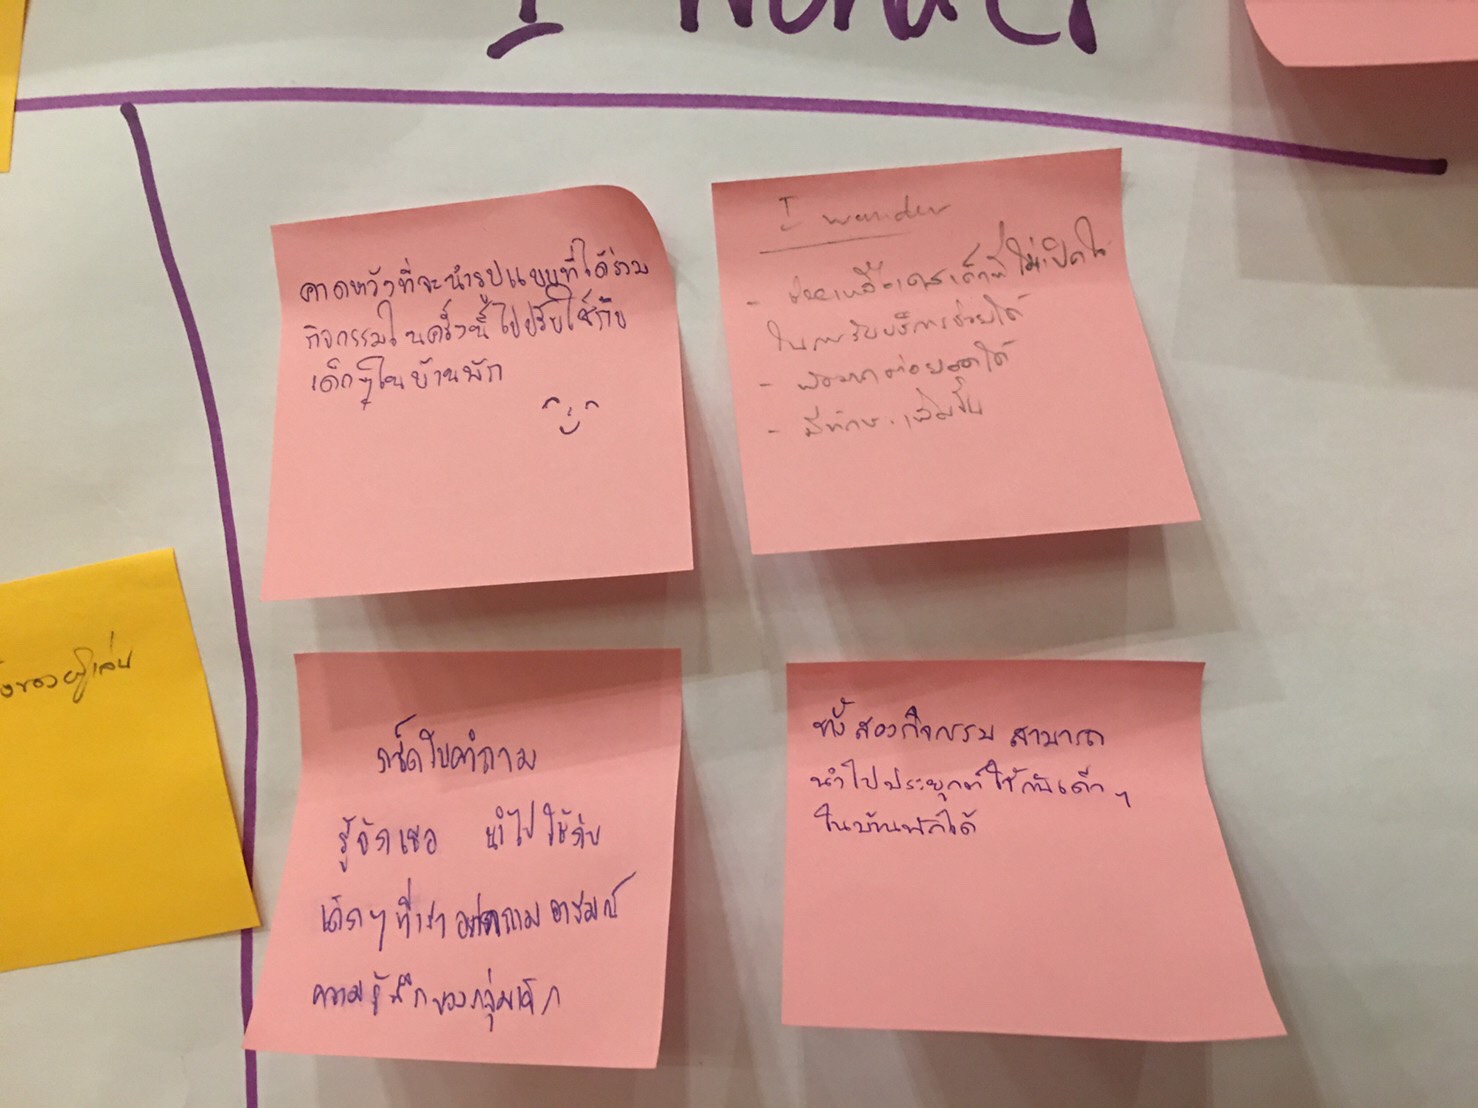 I wonder
คาดหวังที่จะนำรูปแบบที่ได้ร่วม
กิจกรรมในครั้งนี้ไปปรับใช้กับ
เด็กๆในบ้านพัก
I wonder
- ช่วยเหลือเคสเด็กที่ไม่เปิดใจ
ในการรับบริการช่วยได้
- ต่อยอดได้
- มีทักษะเพิ่มขึ้น
การ์ดใบคำถาม
รู้จักเธอ นำไปใช้กับ
เด็กๆ ที่เรา ถามอารมณ์
ความรู้สึกของกลุ่มเด็ก
ทั้งสองกิจกรรม สามารถ
นำไปประยุกต์ใช้กับเด็กๆ
ในบ้านพักได้
ของผู้เล่น